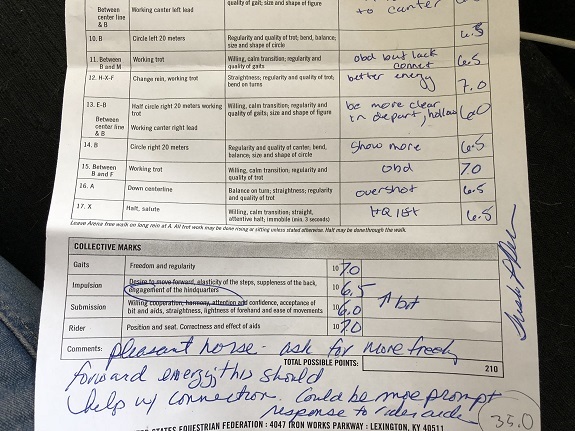 quality of gait; size and shape of figure
Between center line & B Working canter left lead to canter
10. B Circle left 20 meters Regularity and quality of trot; bend, balance; size and shape of circle 6.5
11. Between B and M Working trot Willing, calm transition; regularity and quality of gaits obd but lack connet 6.5
12. H-X-F Change rein, working trot Straightness; regularity and quality of trot; bend on turns better energy 7.0
13. E-B Half circle right 20 meters working trot Willing, calm transition; regularity and quality of gaits; size and shape of figure be more clear in depart, hollow 6.0
Between center line & B Working canter right lead
14. B Circle right 20 meters Regularity and quality of canter; bend, balance; size and shape of circle show more 6.5
15. Between B and F Working trot Willing, calm transition; regularity and quality of trot obd 7.0
16. A Down centerline Balance on turn; straightness; regularity and quality of trot overshot 6.5
17. X Halt, salute Willing, calm transition; straight, attentive halt; immobile (min. 3 seconds) 6.5
Leave Arena free walk on long rein at A. All trot work may be done rising or sitting unless stated otherwise. Halt may be done through the walk.
COLLECTIVE MARKS
Gaits Freedom and regularity 10 7.0
Impulsion Desire to move forward, elasticity of the steps, suppleness of the back, engagement of the hindquarters 10 6.5
Submission Willing cooperation, harmony, attention and confidence, acceptance of bit and aids, straightness, lightness of forehand and ease of movements 10 6.0 ↑ bit
Rider Position and seat. Correctness and effect of aids 10 7.0
Comments: pleasant horse - ask for more freely
TOTAL POSSIBLE POINTS: 210
forward energy; this should
help w/ connection. Could be more prompt
response to rider aide 35.0
STATES EQUESTRIAN FEDERATION : 4047 IRON WORKS PARKWAY : LEXINGTON, KY 40